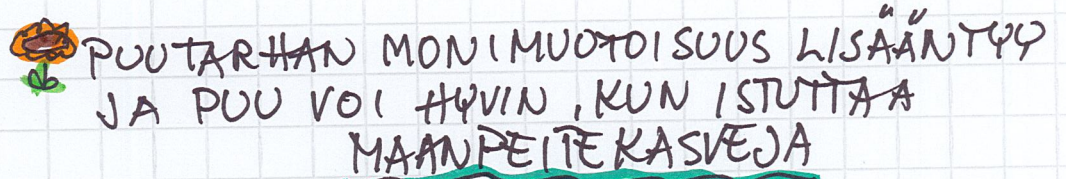 PUUTARHAN MONIMUOTOISUUS LISÄÄNTYY
JA PUU VOI HYVIN, KUN ISTUTTAA
MAANPEITEKASVEJA